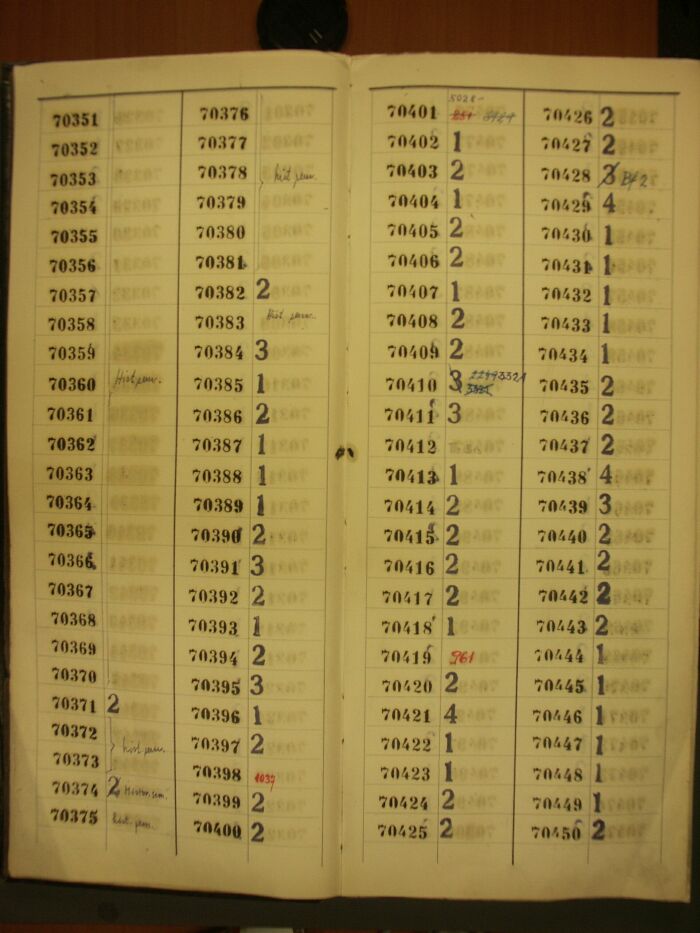 70351
70352
70353
70354
70355
70356
70357
70358
70359
70360 Hist sem.
70361
70362
70363
70364
70365
70366
70367
70368
70369
70370
70371 2
70372
hist sem.
70373
70374 2 Hist sem.
70375 hist. sem.
70376
70377
70378 hist sem.
70379
70380
70381
70382 2
70383 Hist. sem.
70384 3
70385 1
70386 2
70387 1
70388 1
70389 1
70390 2
70391 3
70392 2
70393 1
70394 2
70395 3
70396 1
70397 2
70398 1037
70399 2
70400 2
5028
70401
70402 1
70403 2
70404 1
70405 2
70406 2
70407 1
70408 2
70409 2
70410 3
70411 3
70412
70413 1
70414 2
70415 2
70416 2
70417 2
70418 1
70419 961
70420 2
70421 4
70422 1
70423 1
70424 2
70425 2
70426 2
70427 2
70428 3
70429 4
70430 1
70431 1
70432 1
70433 1
70434 1
70435 2
70436 2
70437 2
70438 4
70439 3
70440 2
70441 2
70442 2
70443 2
70444 1
70445 1
70446 1
70447 1
70448 1
70449 1
70450 2